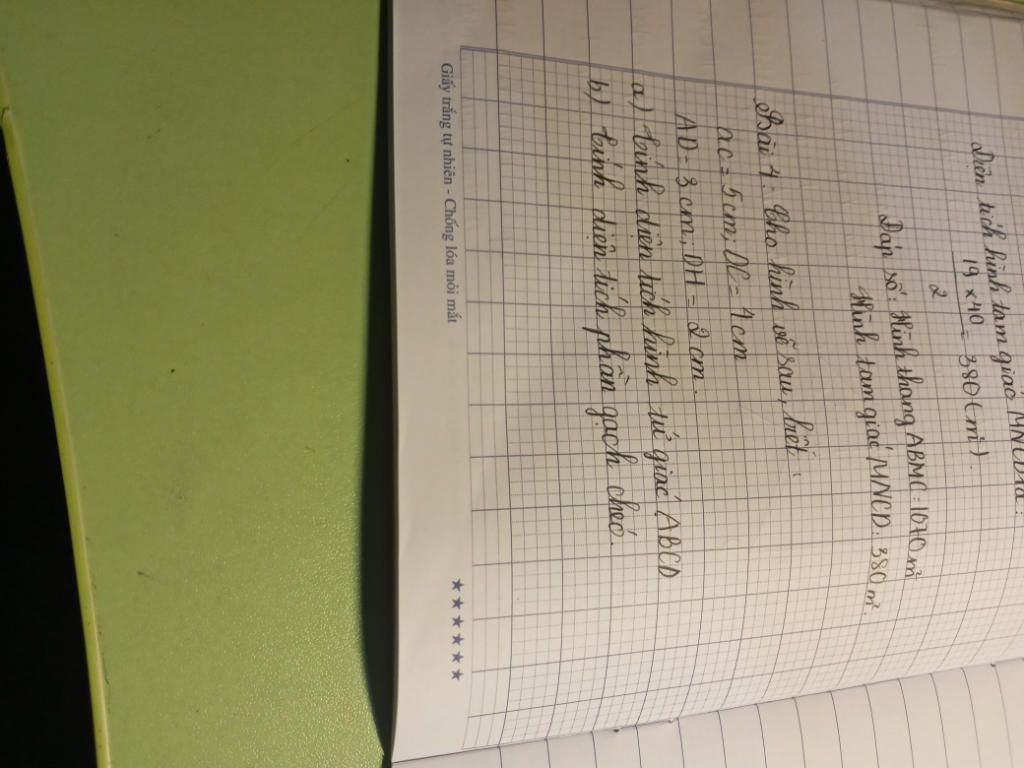 Diện tích hình tam giác MNCD là:
19 x 40
2
= 380 (m²).
Đáp số: Hình thang ABMC: 1070 m²
Hình tam giác MNCD: 380 m²
Bài 4: Cho hình vẽ sau, biết:
AC = 5 cm; DC = 4 cm
AD = 3 cm; DH = 2 cm.
a) tính diện tích hình tứ giác ABCD
b) tính diện tích phần gạch chéo.
Giấy trắng tự nhiên - Chống lóa mỏi mắt ★★★★★★